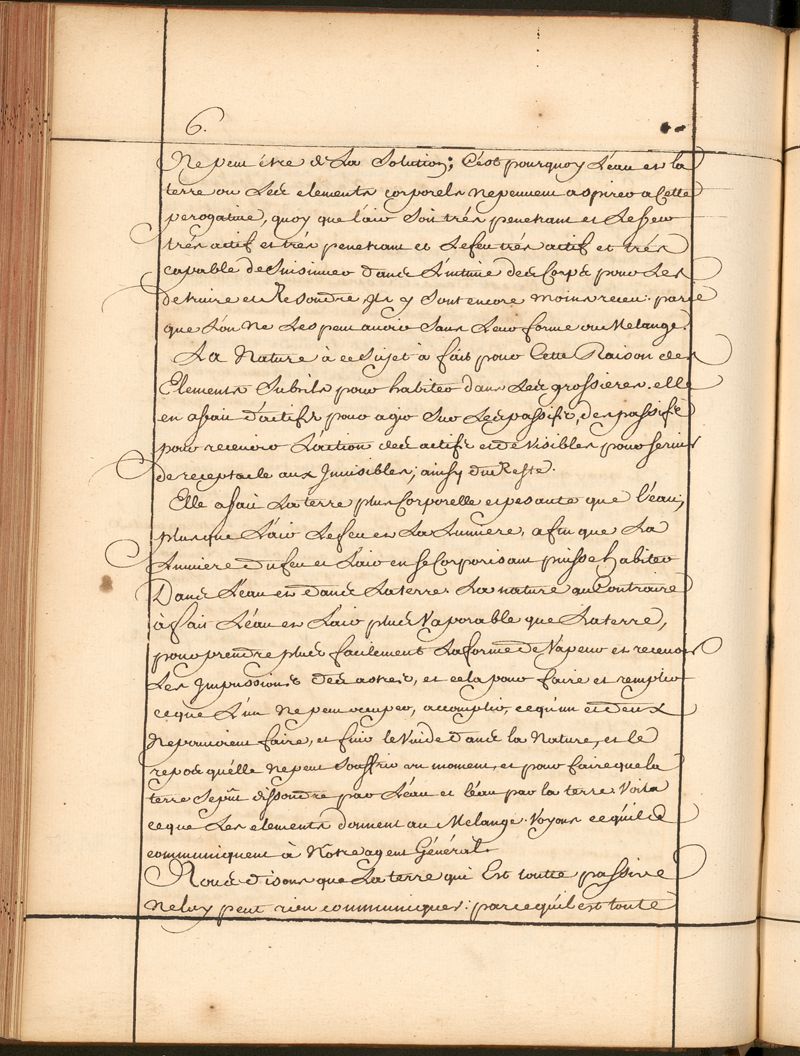 6.
Ne peut étre de La Solution; C'est pourquoy L'eau et la
terre ou Les elements corporels ne peuvent aspirer a Cette
perogative, quoy que l'air soit trés penetrant et Le feu
trés actif et trés penetrant et Le feu trés actif et trés
capable de S'insinuer dans L'intime des Corps pour Les
detruire et Resoudre, Ils y sont encore moins receu. parce
que L'on Ne Les peut avoir Sans Leur forme ou Melange.
La Nature à ce Sujet à fait pour Cette Raison des
Elements Subtils pour habiter dans Les grossieres. elle
en a fait d'actifs pour agir Sur Les passifs, des passifs
pour recevoir L'action des actifs et de Visibles pour servir
de receptacle aux Invisibles; ainsy du Reste.
Elle a fait La terre plus Corporelle et pesante que l'eau,
plus que L'air Le feu et La Lumiere, afin que La
Lumiere du feu et L'air en se Corporisant puisse habiter
Dans L'eau et dans La terre. La nature au Contraire
à fait L'eau et L'air plus Vaporable que La terre,
pour prendre plus facilement La forme de Vapeur et recevoir
Les Impressions des astres, et cela pour faire et remplir
ce que L'un Ne peut occuper, accomplir, ce qu'un et deux
Ne pouvoient faire, et fuir le Vuide dans la Nature, et le
repos qu'elle ne peut Souffrir un moment, et pour faire que la
terre se put dissoudre par L'eau et l'eau par la terre. Voila
ce que Les elements donnent au Melange. Voyons ce qu'ils
communiquent à Notre agent Général.
Nous disons que La terre qui Est toutte passive
Ne luy peut rien communiquer: parce qu'il est toute